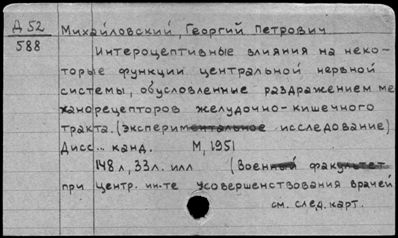 Д 52
588
Михайловский, Георгий Петрович
Интероцептивные влияния на неко-
торые функции центральной нервной
системы, обусловленные раздражением ме
ханорецепторов желудочно-кишечного
тракта. (экспериментальное исследование)
Дисс... канд. М, 1951
148 л, 33 л. илл (Военный факультет
при центр. ин-те усовершенствования врачей
см. след. карт.